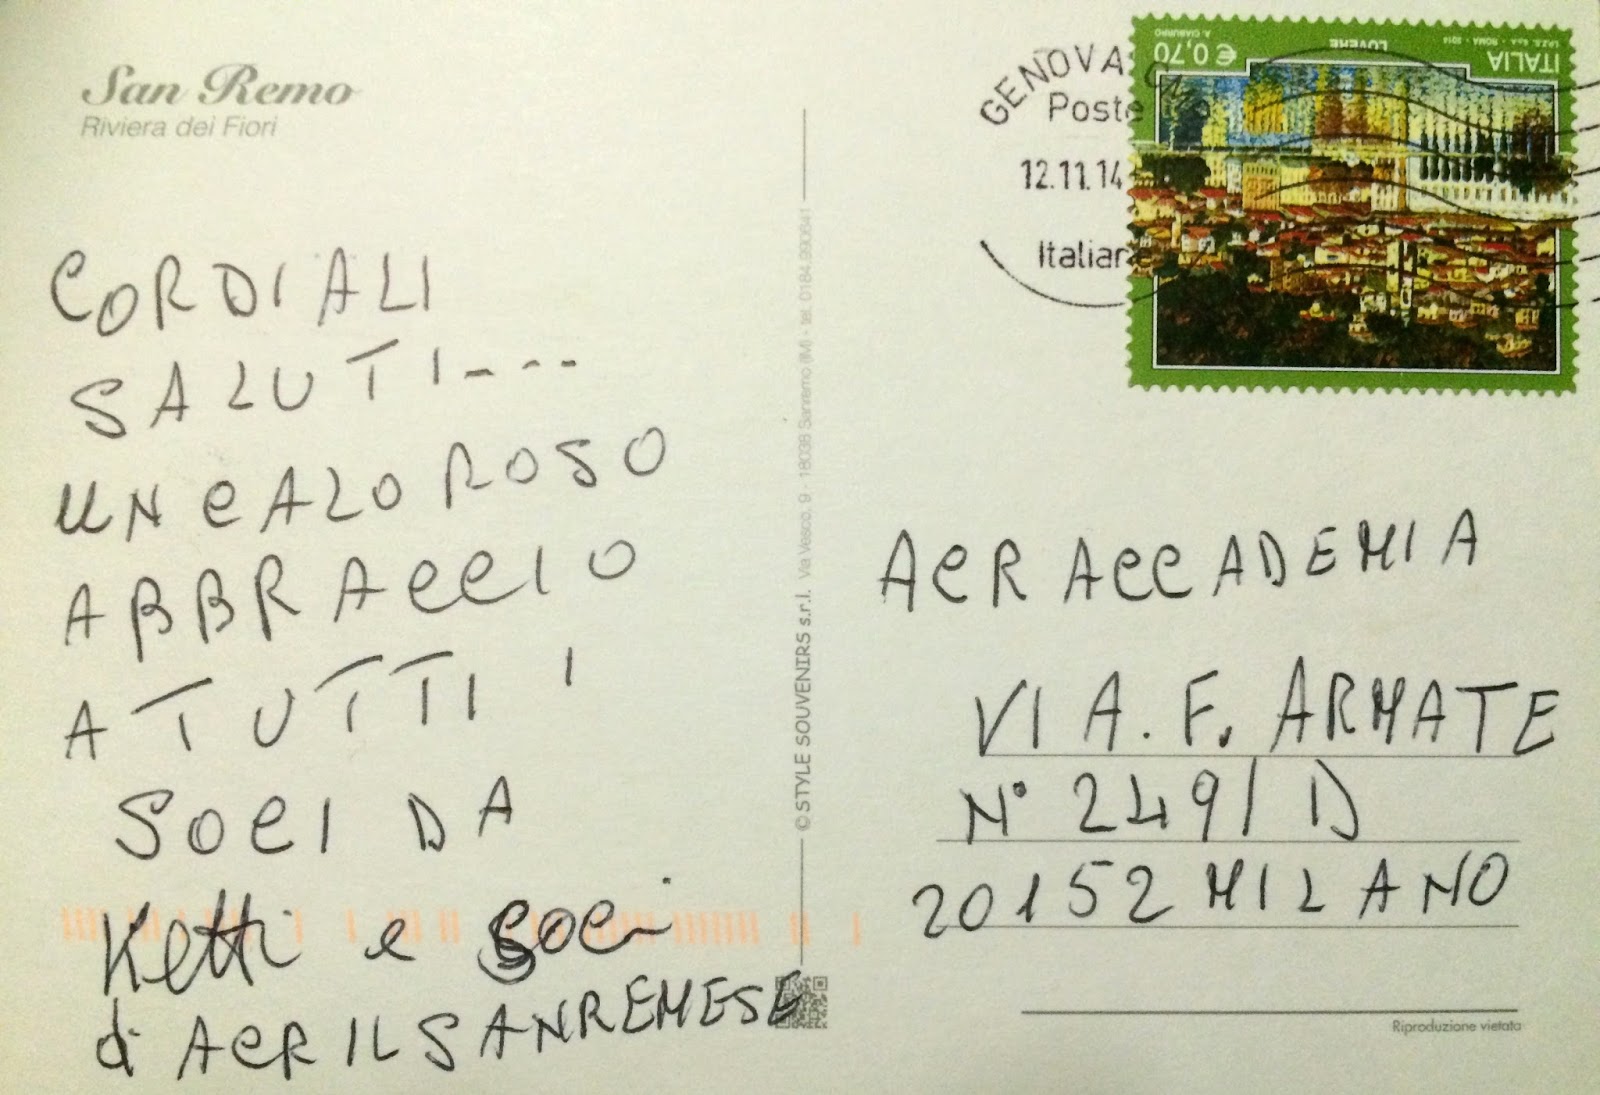 San Remo
Riviera dei Fiori
CORDIALI
SALUTI----
UN CALOROSO
ABBRACCIO
A TUTTI I
SOCI DA
Ketti e Soci
di ACR IL SANREMESE
© STYLE SOUVENIRS s.r.l. Via Vesco, 9 - 18038 Sanremo (IM) - tel. 0184.990641
GENOVA CMP
Poste
12.11.14
Italiane
ITALIA
LOVERE
€ 0,70
I.P.Z.S. S.p.A. - ROMA - 2014
A. CIABURRO
ACR ACCADEMIA
VIA. F. ARMATE
N° 249/D
20152 MILANO
Riproduzione vietata